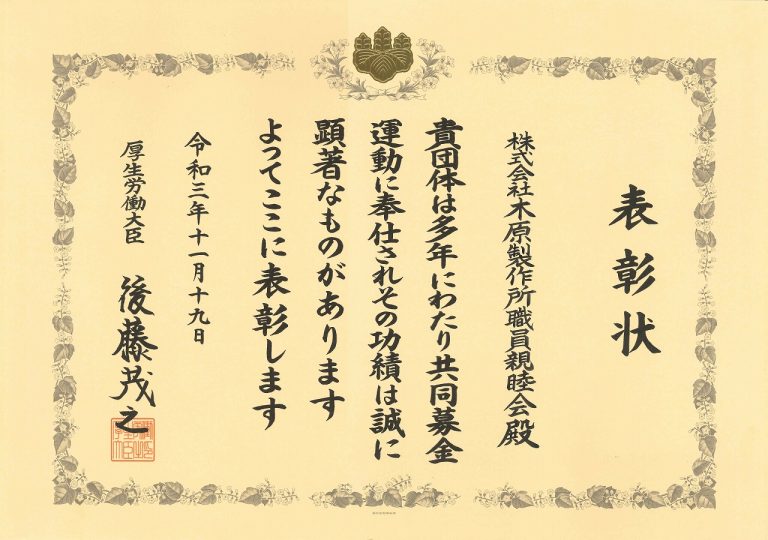 表彰状
株式会社木原製作所職員親睦会殿
貴団体は多年にわたり共同募金
運動に奉仕されその功績は誠に
顕著なものがあります
よってここに表彰します
令和三年十一月十九日
厚生労働大臣 後藤茂之